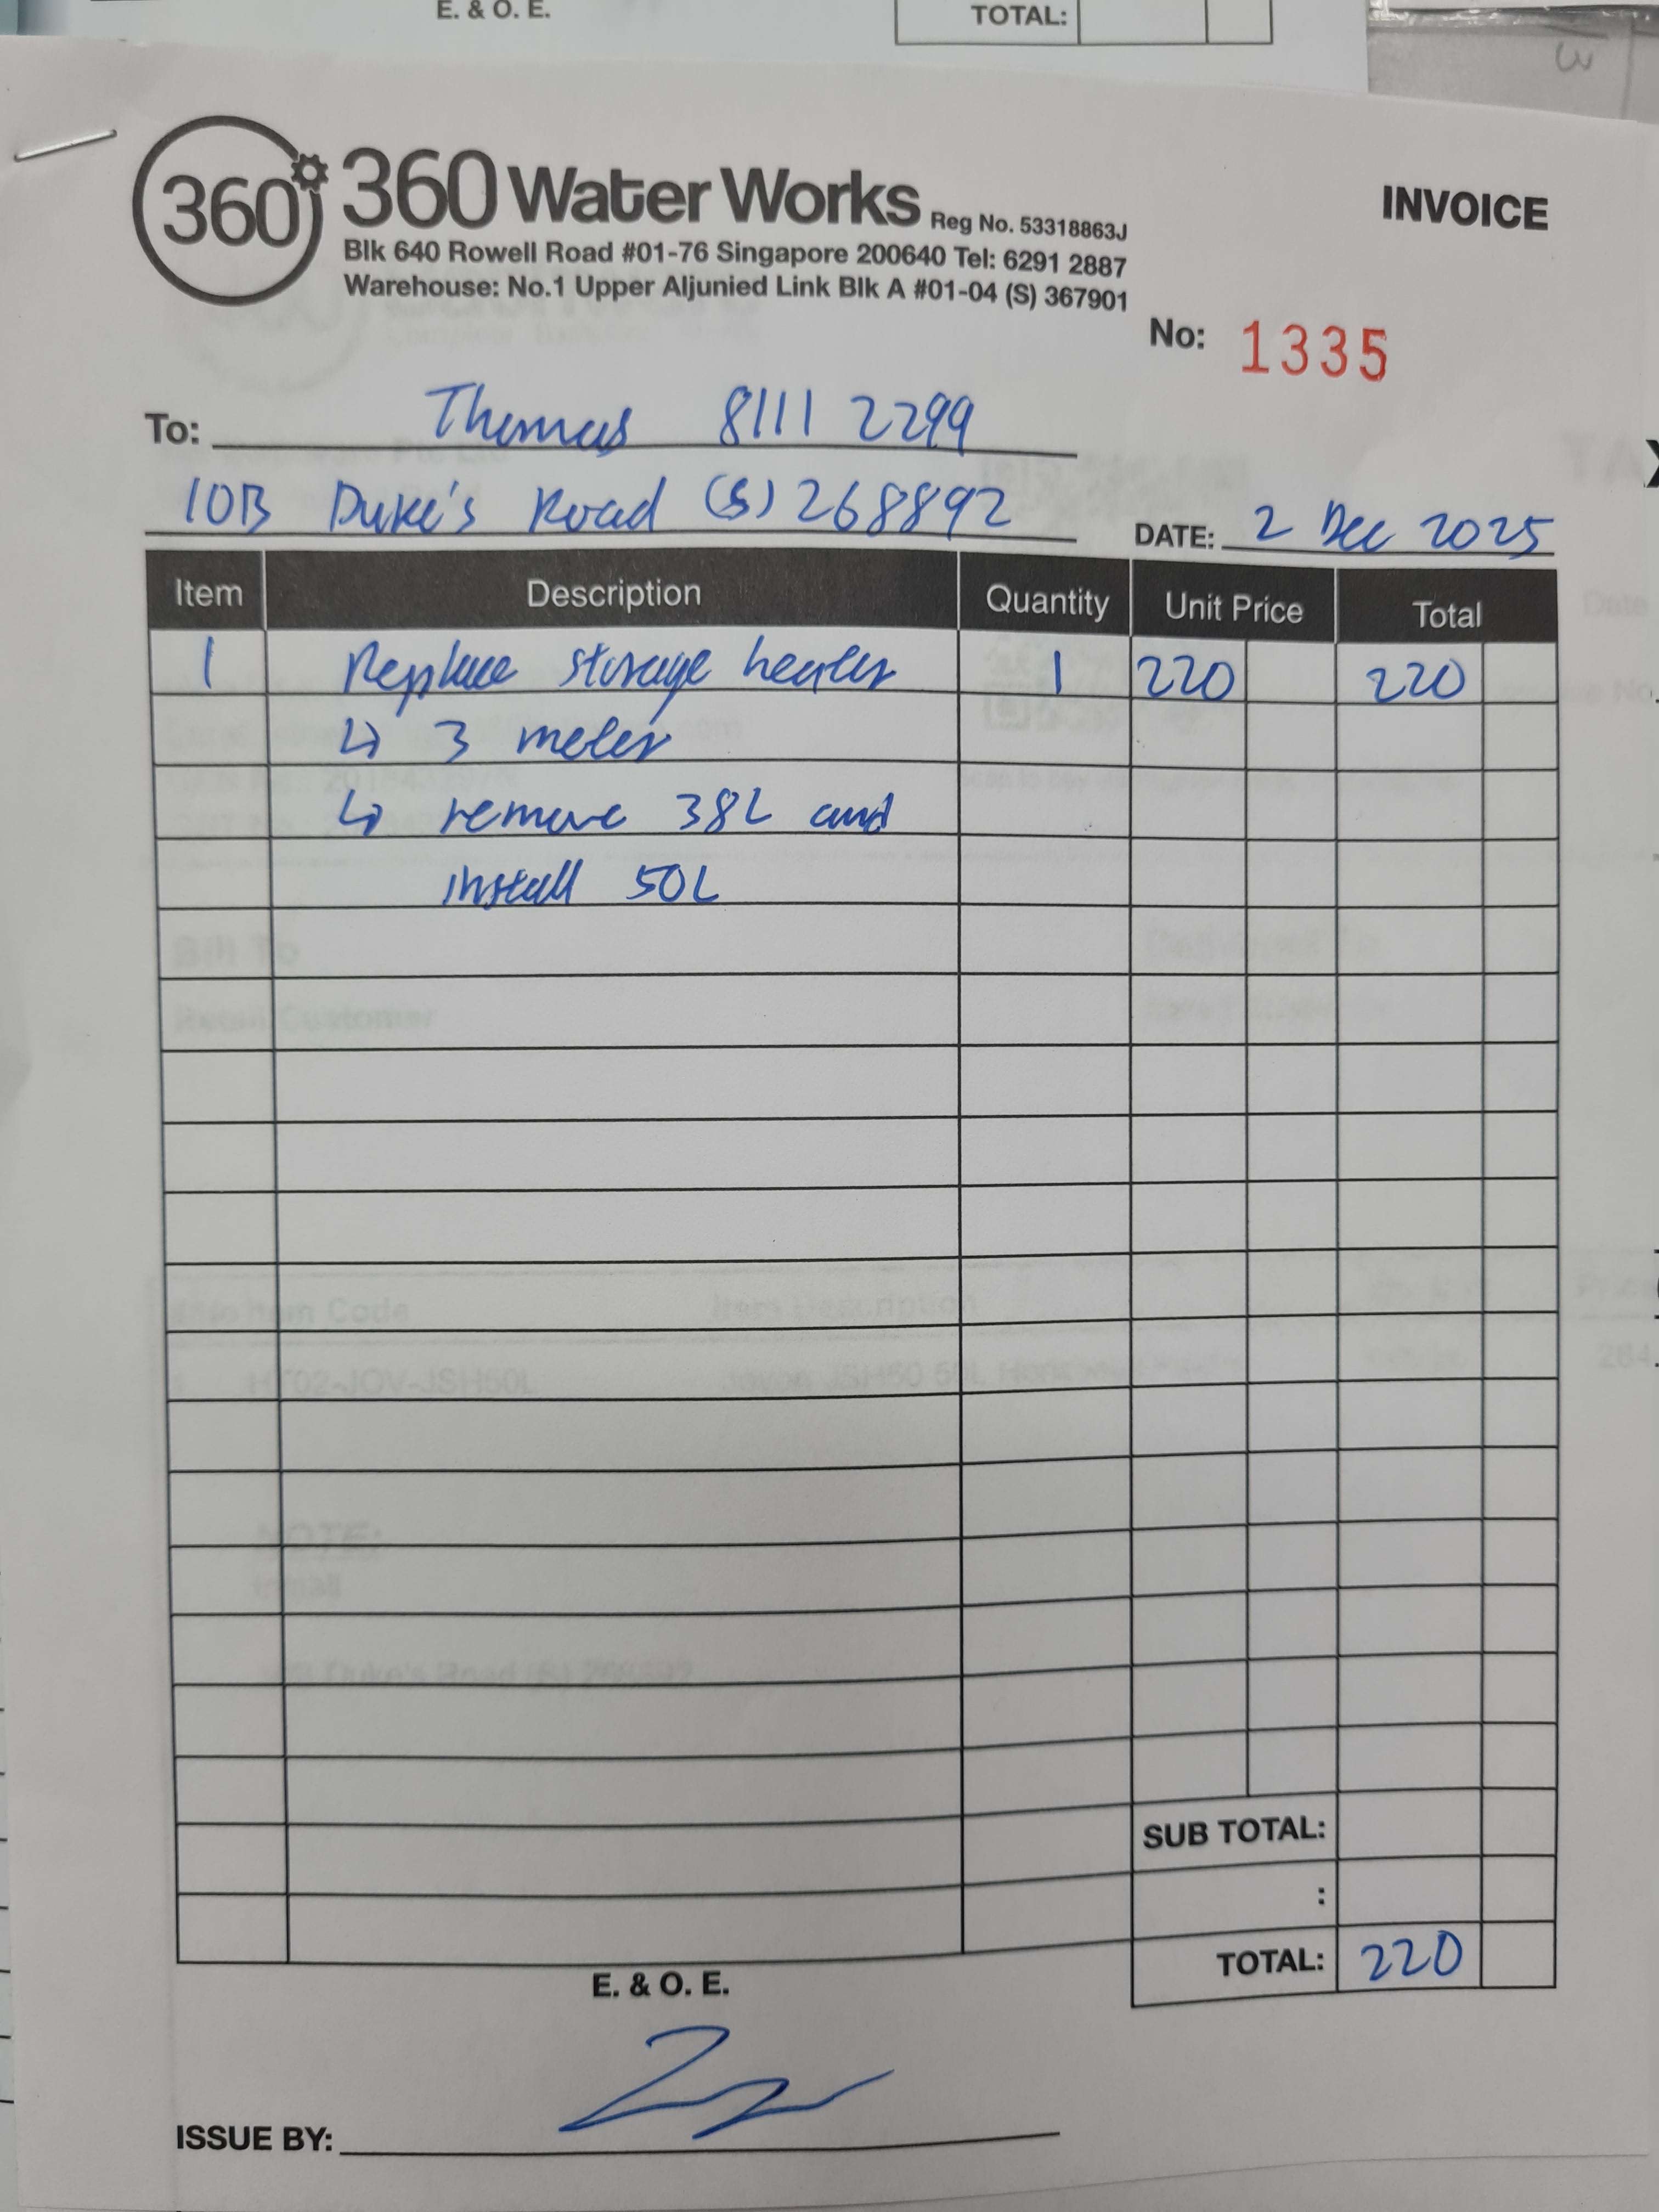 E. & O. E. TOTAL:
3
360
360 Water Works Reg No. 53318863J
INVOICE
Blk 640 Rowell Road #01-76 Singapore 200640 Tel: 6291 2887
Warehouse: No.1 Upper Aljunied Link Blk A #01-04 (S) 367901
No: 1335
To: Thomas 8111 2299
10B Duke's Road (S) 268892
DATE: 2 Dec 2025
Item Description Quantity Unit Price Total
1 Replace storage heater 1 220 220
↳ 3 meter
↳ remove 38L and
install 50L
Bill To
Retail Customer
Item Code Item Description Price
HT02-JOV-JSH50L
NOTE:
Install
Duke's Road (S)
SUB TOTAL:
:
TOTAL: 220
E. & O. E.
ISSUE BY: